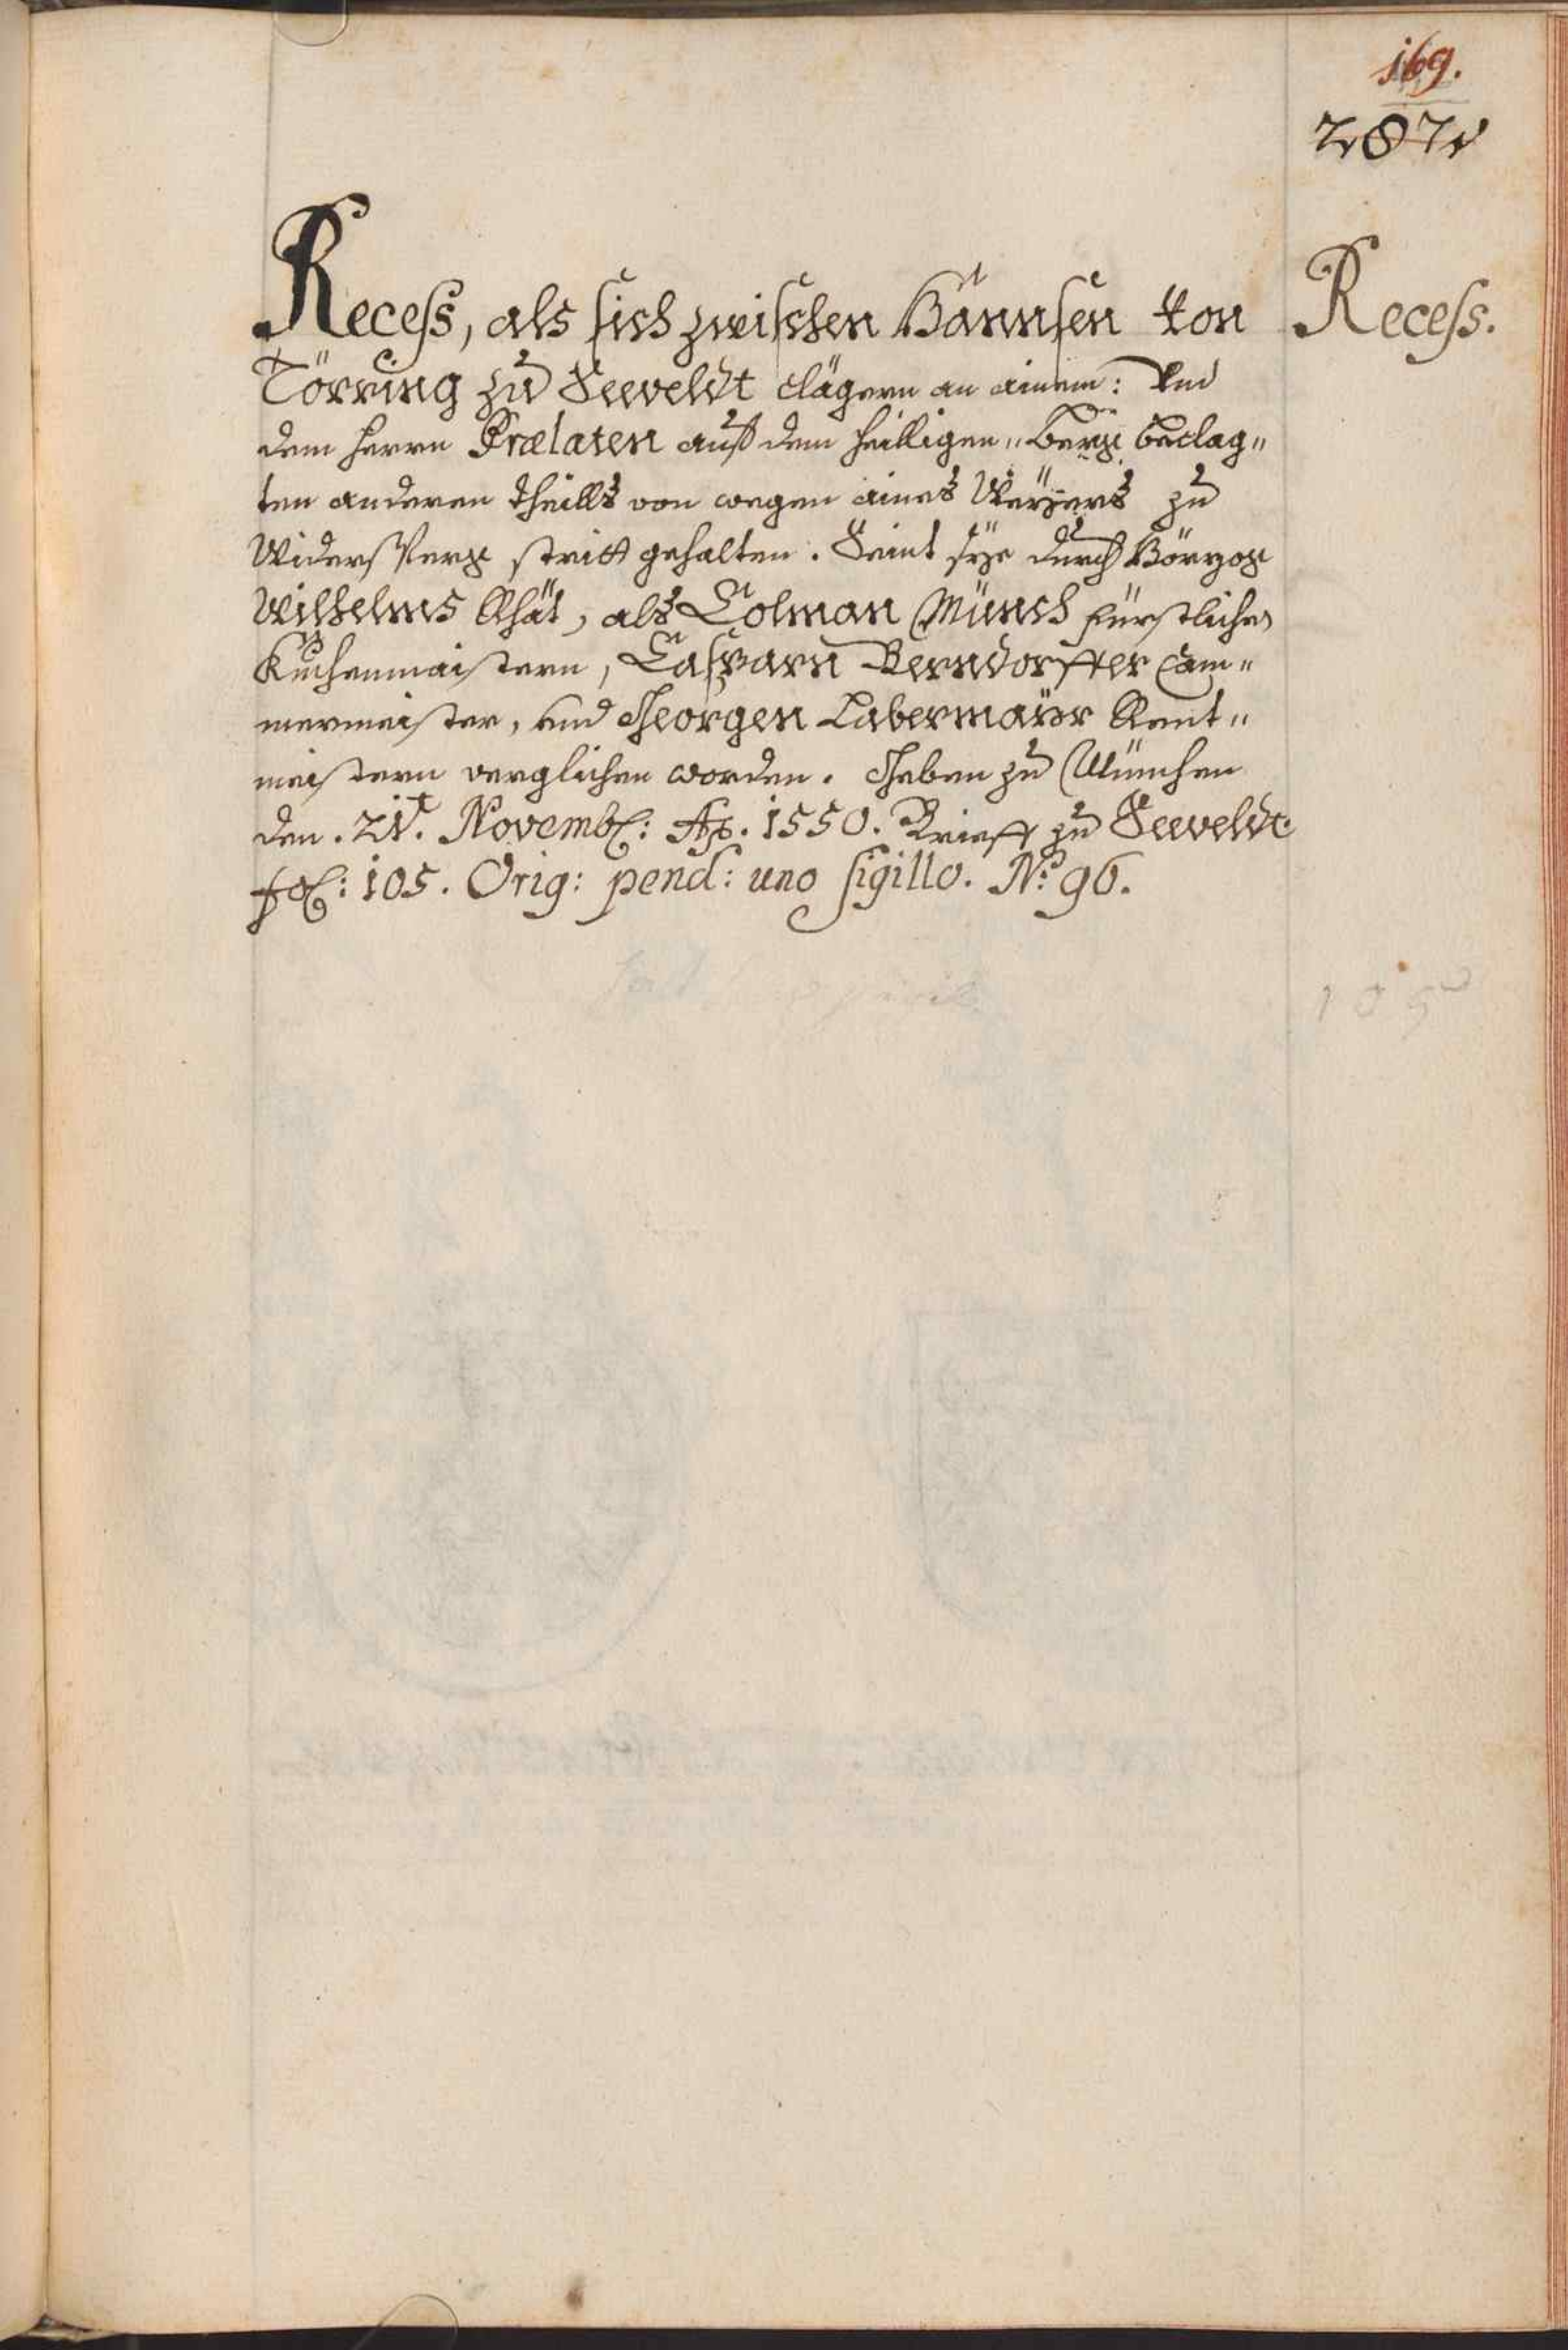 169.
287
Recess.
Recess, als sich zwischen Hannsen von
Törring zu Seeveldt clägern an ainem: Und
dem herrn Prælaten auß dem heilligen „ Berg beclag„
ten anderen theills von wegen aines Weyers zu
Widersperg stritt gehalten. Seint sye durch Hörzog
Wilhelms Rhät, als Colman Münch fürstlichen
Kuchenmaistern, Casparn Berndorffer Cam„
mermeister, und Georgen Labermayr Rent„
meistern verglichen worden. Geben zu München
den. 21t. Novemb: Ao. 1550. Brieff zu Seeveldt
fol: 105. Orig: pend: uno sigillo. No. 96.